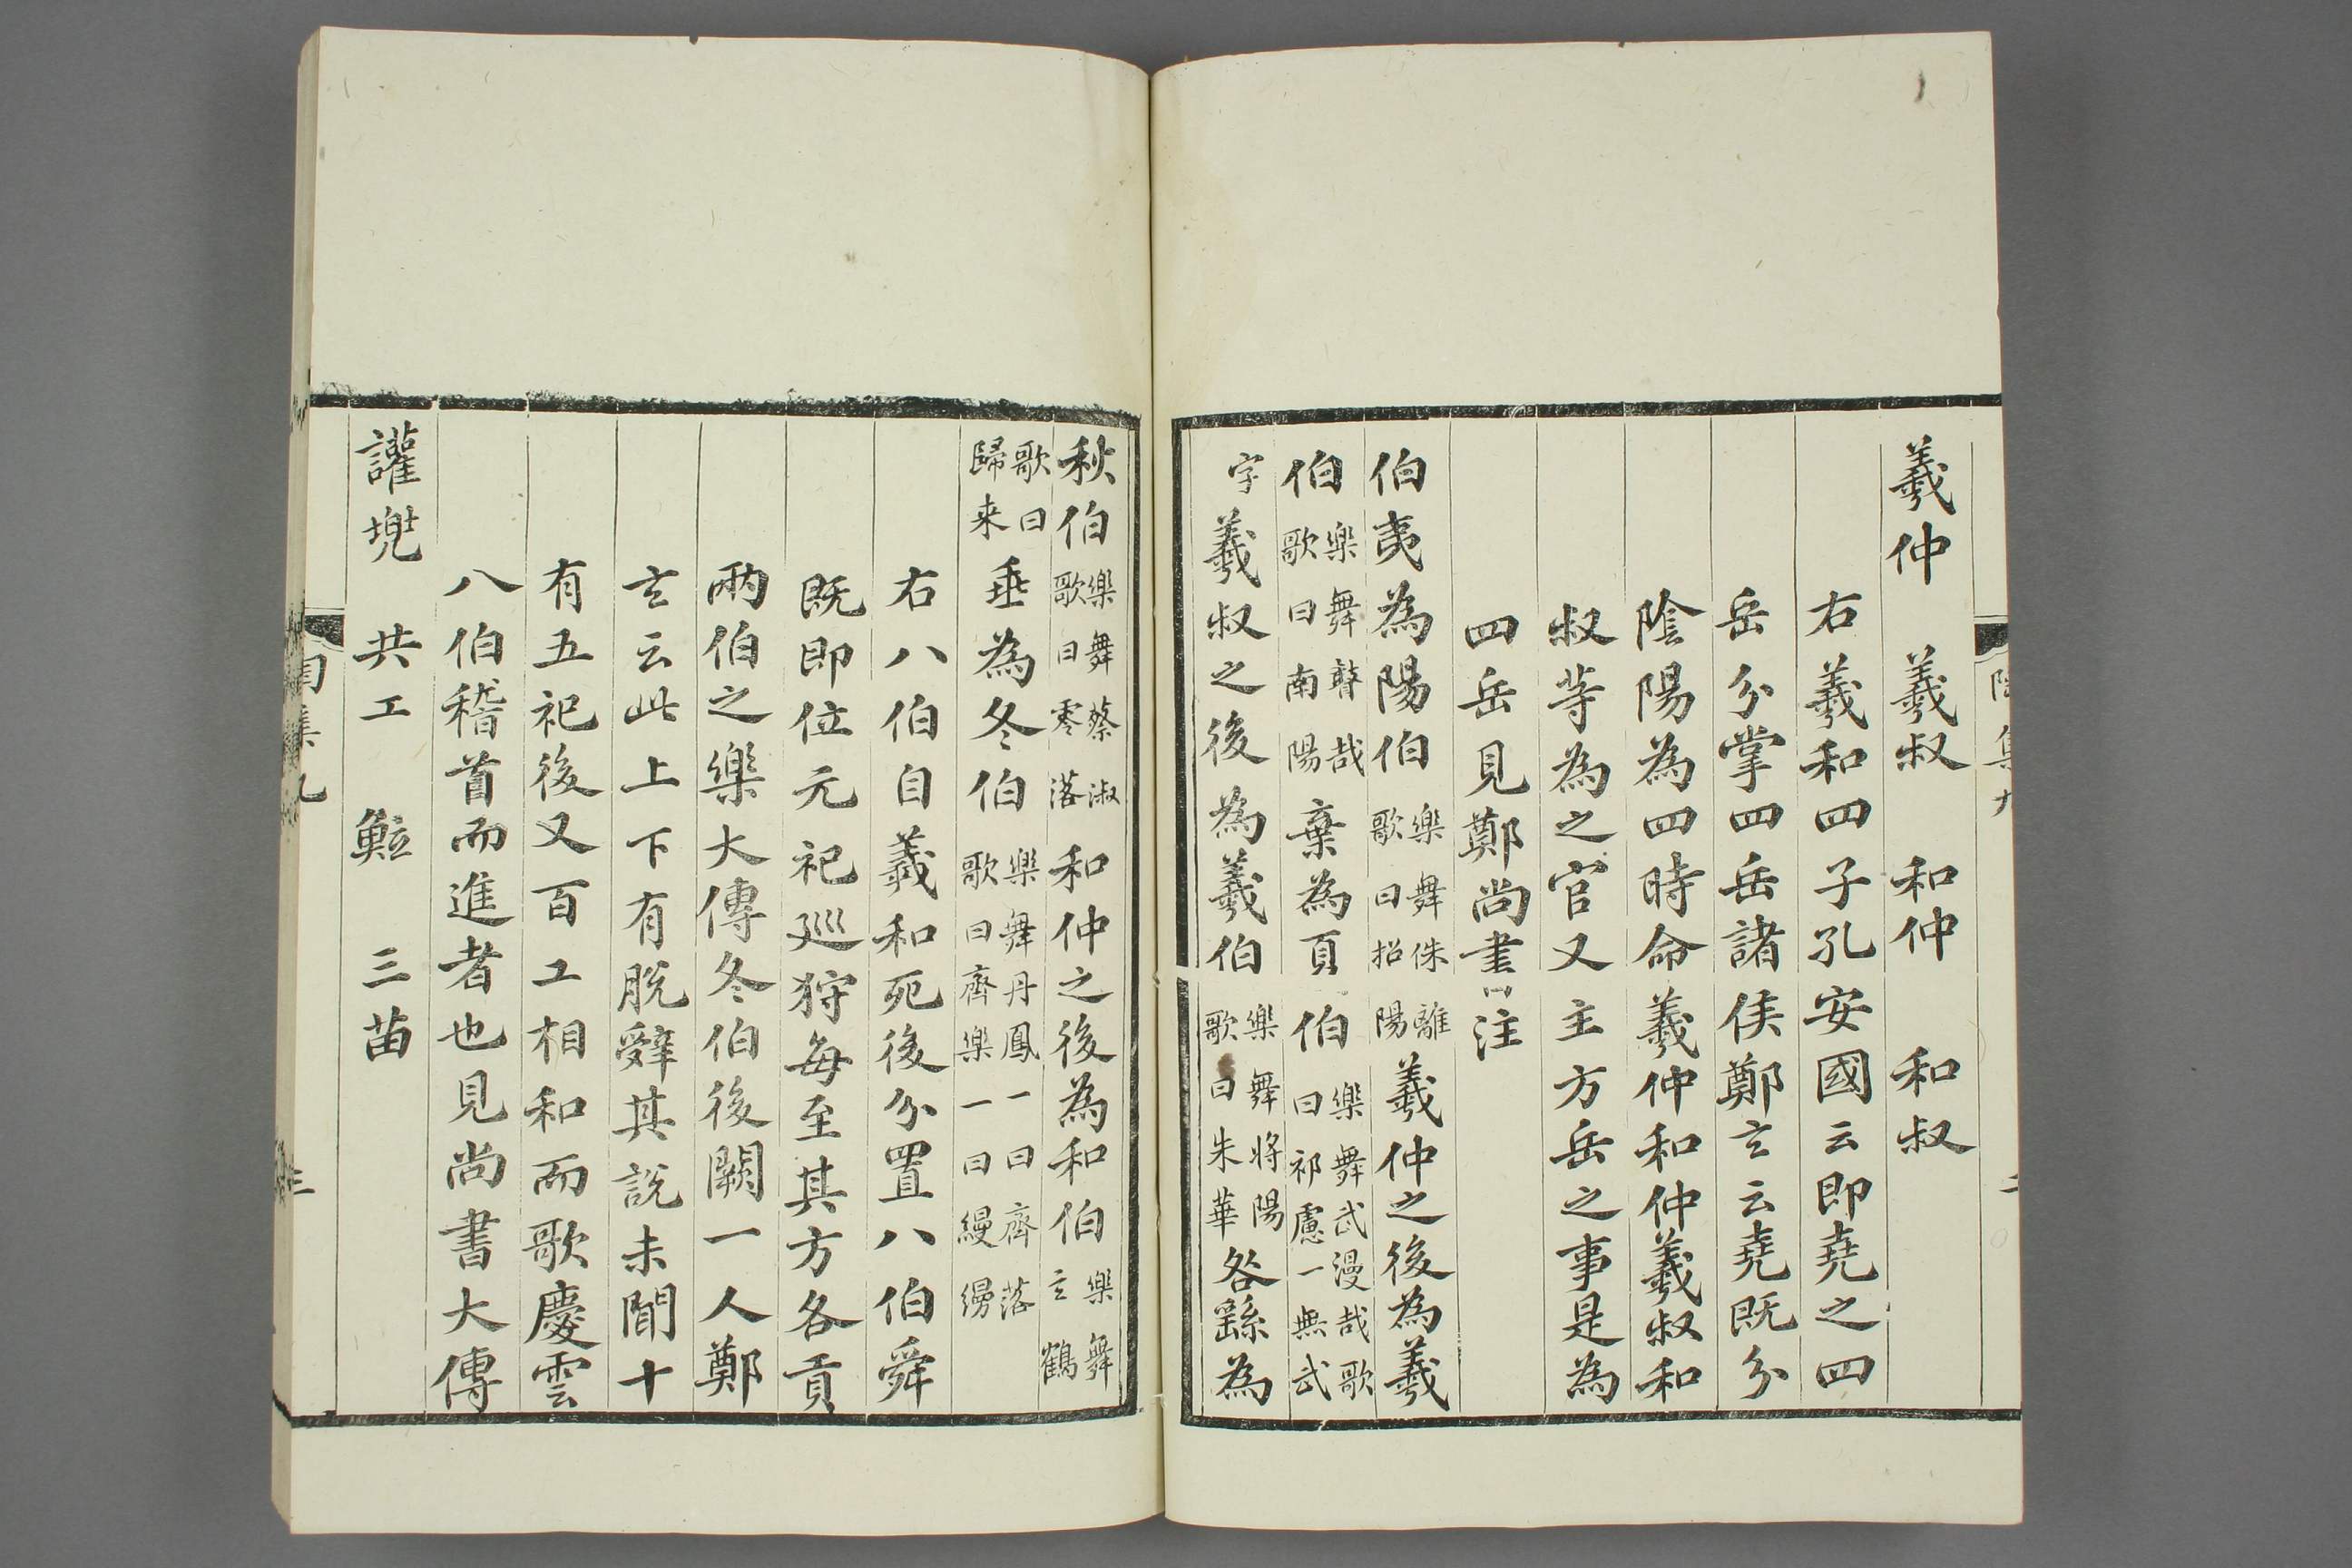 羲仲 羲叔 和仲 和叔
右羲和四子孔安國云即堯之四
岳分掌四岳諸侯鄭玄云堯既分
陰陽為四時命羲仲和仲羲叔和
叔等為之官又主方岳之事是為
四岳見鄭尚書注
伯夷為陽伯樂舞侏離歌曰招陽羲仲之後為羲
伯樂舞鼚哉歌曰南陽棄為頁伯樂舞武漫哉歌曰祁慮一無武
字羲叔之後為羲伯樂舞將陽歌曰朱華咎繇為
秋伯樂舞蔡淑歌曰零落和仲之後為和伯樂舞玄鶴
歌曰歸来垂為冬伯樂舞丹鳳一曰齊落歌曰齊樂一曰縵縵
右八伯自義和死後分置八伯舜
既即位元祀巡狩每至其方各貢
兩伯之樂大傳冬伯後闕一人鄭
玄云此上下有脫辭其說未聞十
有五祀後又百工相和而歌慶雲
八伯稽首而進者也見尚書大傳
讙兠 共工 鮌 三苗